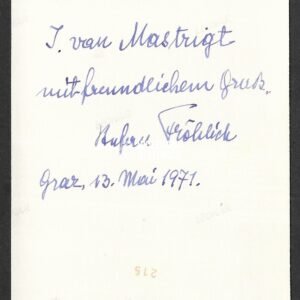 J. van Mastrigt
mit freundlichem Gruß.
Fröhlich
Graz, 13. Mai 1971.
215